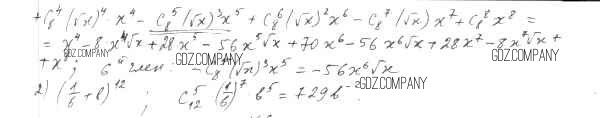 + C₈⁴ (√x)⁴ · x⁴ − C₈⁵ (√x)³ x⁵ + C₈⁶ (√x)² x⁶ − C₈⁷ (√x) x⁷ + C₈⁸ x⁸ =
= x⁴ − 8 · x⁴ √x + 28x⁵ − 56x⁵√x + 70x⁶ − 56x⁶√x + 28x⁷ − 8x⁷√x +
+ x⁸; 6й член − C₈⁵ (√x)³ x⁵ = −56x⁶√x
2) (1/б + b)¹² ; C₁₂⁵ (1/б)⁷ b⁵ = 729b⁻²
GDZ.COMPANY
GDZ.COMPANY
GDZ.COMPANY
GDZ.COMPANY